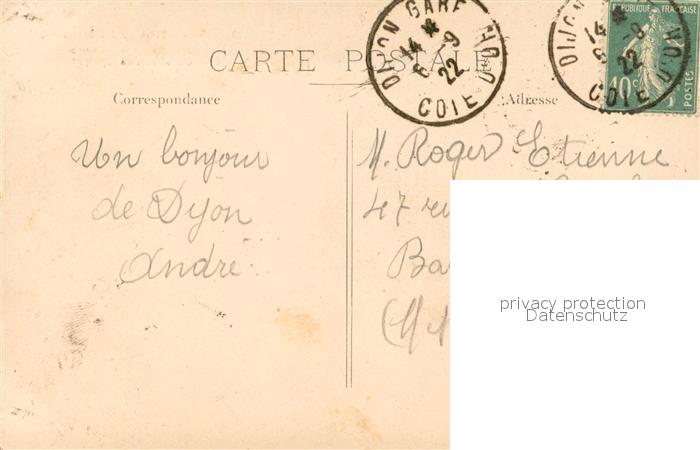 CARTE POSTALE
DIJON GARE
14 *
6 - 9
22
COTE D'OR
DIJON
14 *
- 9
22
COTE D'OR
REPUBLIQUE FRANCAISE
10c
POSTES
Correspondance
Adresse
Un bonjour
de Dijon
André
M. Roger Etienne
47
Ba
(M
privacy protection
Datenschutz